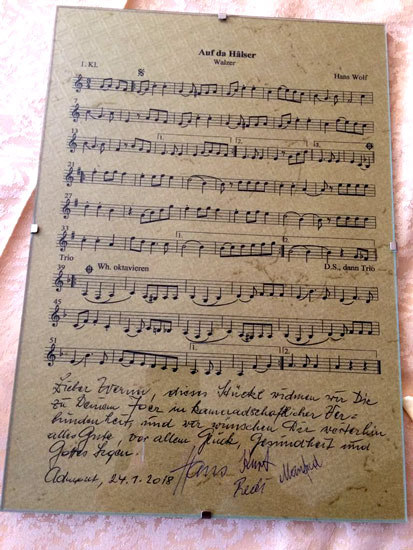 Auf da Hälser
Walzer
1. Kl.
Hans Wolf
7
1.
2.
1.
2.
21
27
33
1.
2.
Trio
Wh. oktavieren
D.S., dann Trio
39
45
51
1.
2.
Lieber Werner, dieses Stückel widmen wir Dir
zu Deinem 70er in kameradschaftlicher Ver-
bundenheit, und wir wünschen Dir weiterhin
alles Gute, vor allem Glück, Gesundheit und
Gottes Segen.
Admont, 24.1.2018
Hans Kurt
Manfred